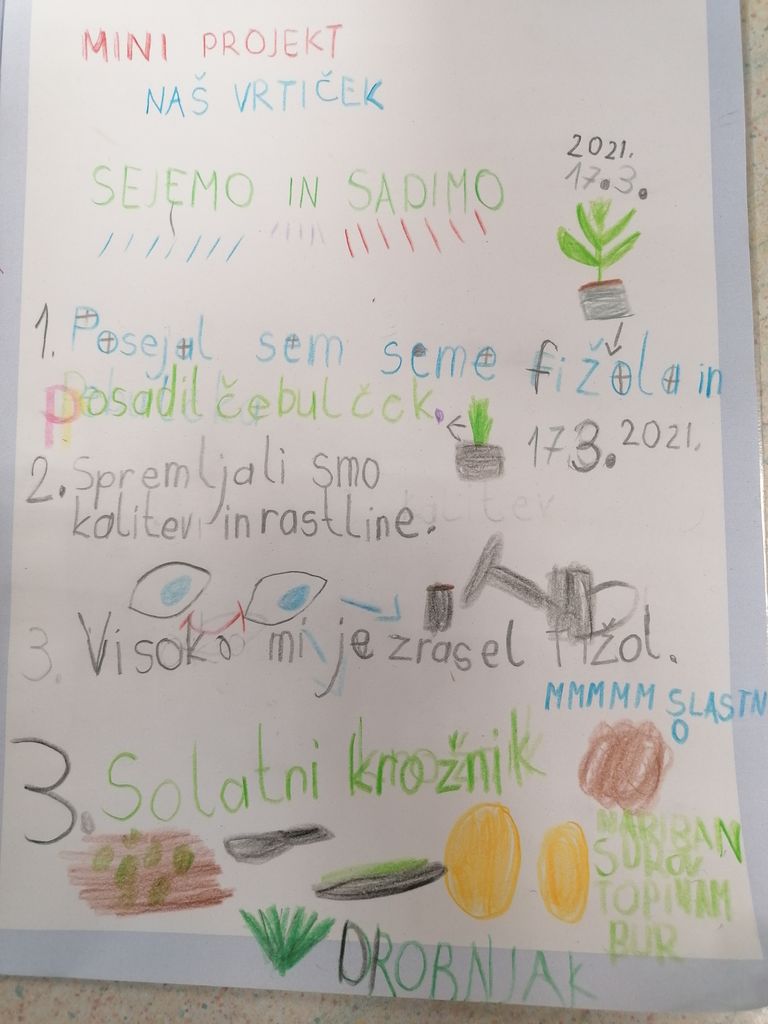 MINI PROJEKT
NAŠ VRTIČEK
2021.
17.3.
SEJEMO IN SADIMO
1. Posejal sem seme fižola in
posadil čebulček.
173. 2021.
2. Spremljali smo
kalitev in rastline.
3. Visoko mi je zrasel fižol.
MMMMM SLASTN
O
3. Solatni krožnik
NARIBAN
SUROV
TOPINAM
BUR
DROBNJAK